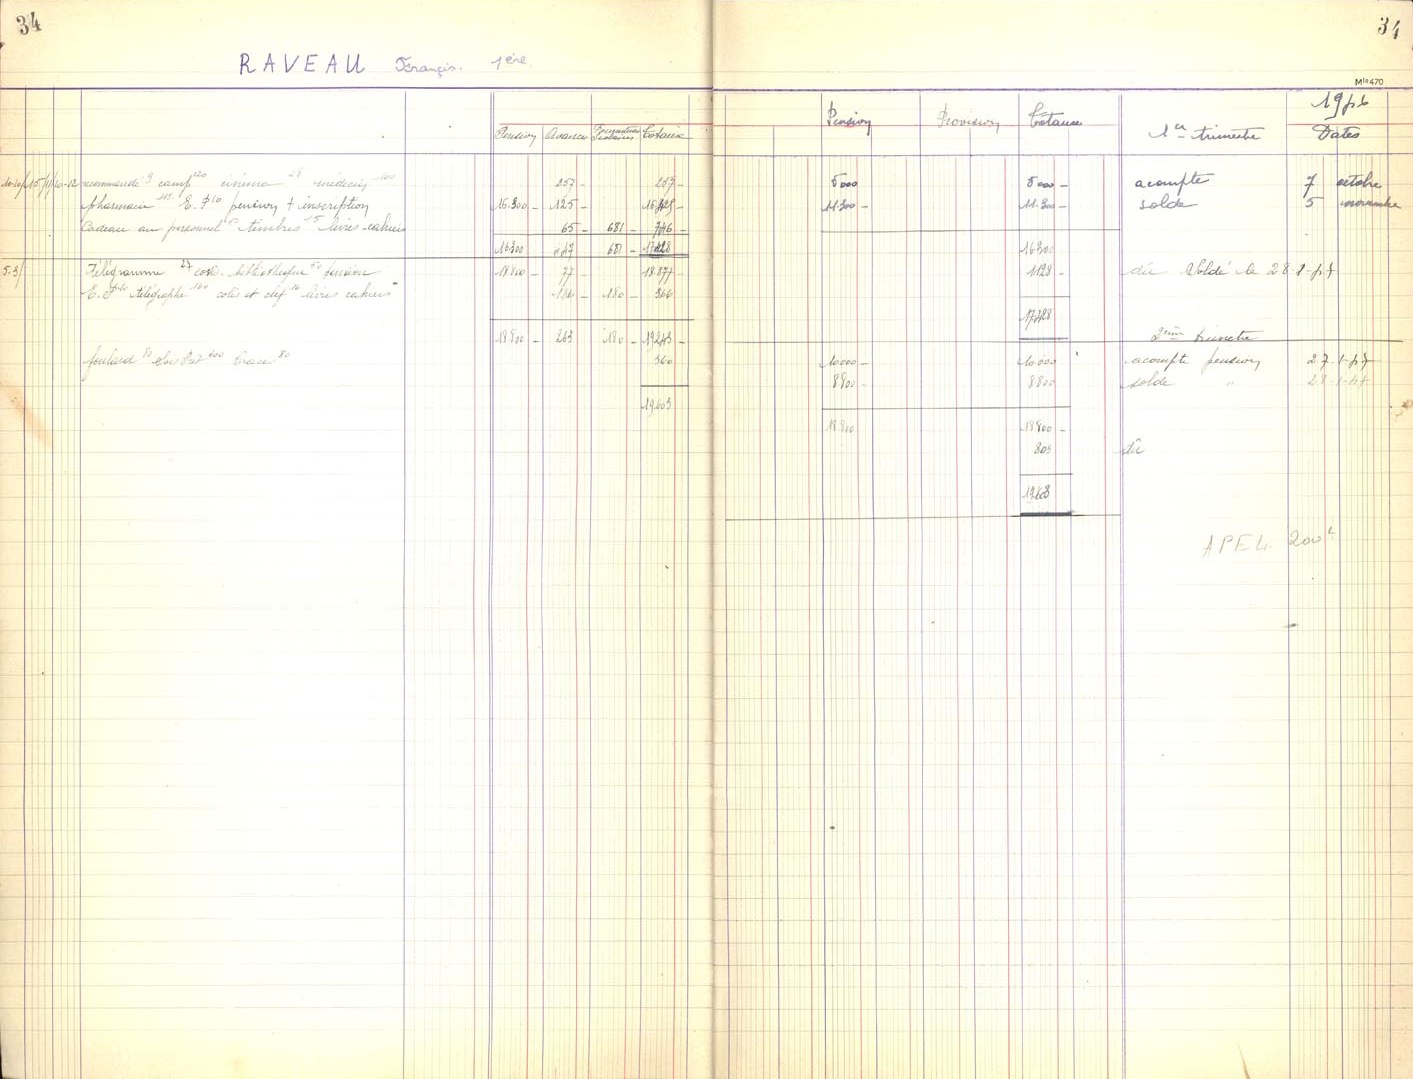 34
RAVEAU François. 1ère
Pension Avances Fournitures Scolaires Totaux
recommandé 9 camp 120 cinéma 28 médecin 100 257 - 257 -
pharmacie E.P 10 pension + inscription 16.300 - 125 - 16425
Cadeau au personnel timbres 15 livres cahiers 65 - 681 - 746 -
16300 447 681 - 17428
5.3/ Télégramme 27 bibliothèque 50 pension 18800 - 77 - 18.877 -
E.P 10 télégraphe colis et clef 16 livres cahiers 186 - 180 - 366
18800 - 263 180 - 19243 -
foulard 80 400 80 360
19603
34
Mle 470
Pension Provision Totaux 1er trimestre 1956 Dates
5000 5000 - acompte 7 octobre
11300 - 11.300 - solde 5 novembre
16300
1128 - dû Soldé le 28-1-57
17428
2ème trimestre
10000 - 10000 acompte pension 27-1-57
8800 - 8800 solde " 28-1-57
18800 18800 -
803 dû
19603
APEL 200